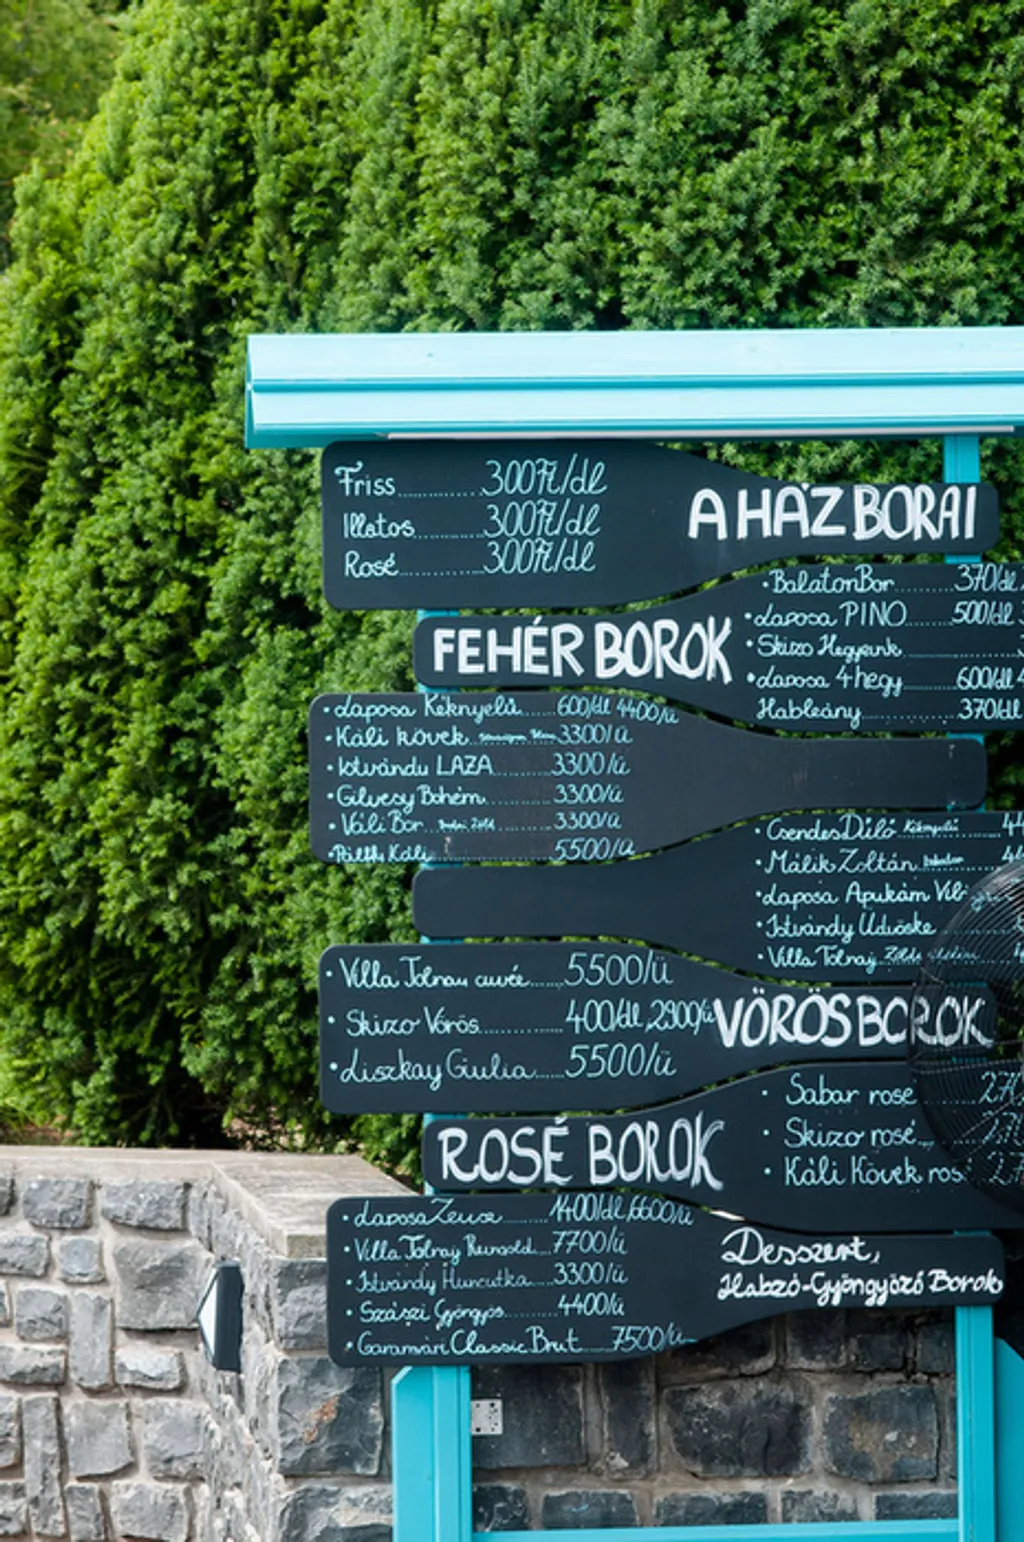 Friss.............300Ft/dl
Illatos...........300Ft/dl
Rosé..............300Ft/dl
A HÁZ BORAI
FEHÉR BOROK
• BalatonBor........370/dl
• Laposa PINO.......500/dl
• Skizo Hegyeink
• Laposa 4hegy......600/dl
Hableány............370/dl
• Laposa Kéknyelű.....600/dl 4400/ü
• Káli kövek 3300/ü
• Istvándy LAZA.......3300/ü
• Gilvesy Bohém.......3300/ü
• Váli Bor 3300/ü
• Pálffy Káli 5500/ü
• Csendes Dűlő Kéknyelű
• Málik Zoltán
• Laposa Apukám
• Istvándy Üdvöske
• Villa Tolnay
• Villa Tolnay cuvée.....5500/ü
• Skizo Vörös.........400/dl, 2900/ü
• Liszkay Giulia......5500/ü
VÖRÖS BOROK
ROSÉ BOROK
• Sabar rose
• Skizo rosé
• Káli Kövek
• Laposa Zeusz........1400/dl, 6600/ü
• Villa Tolnay 7700/ü
• Istvándy Huncutka...3300/ü
• Szászi Gyöngyös.....4400/ü
• Garamvári Classic Brut....7500/ü
Desszert,
Habzó-Gyöngyöző Borok